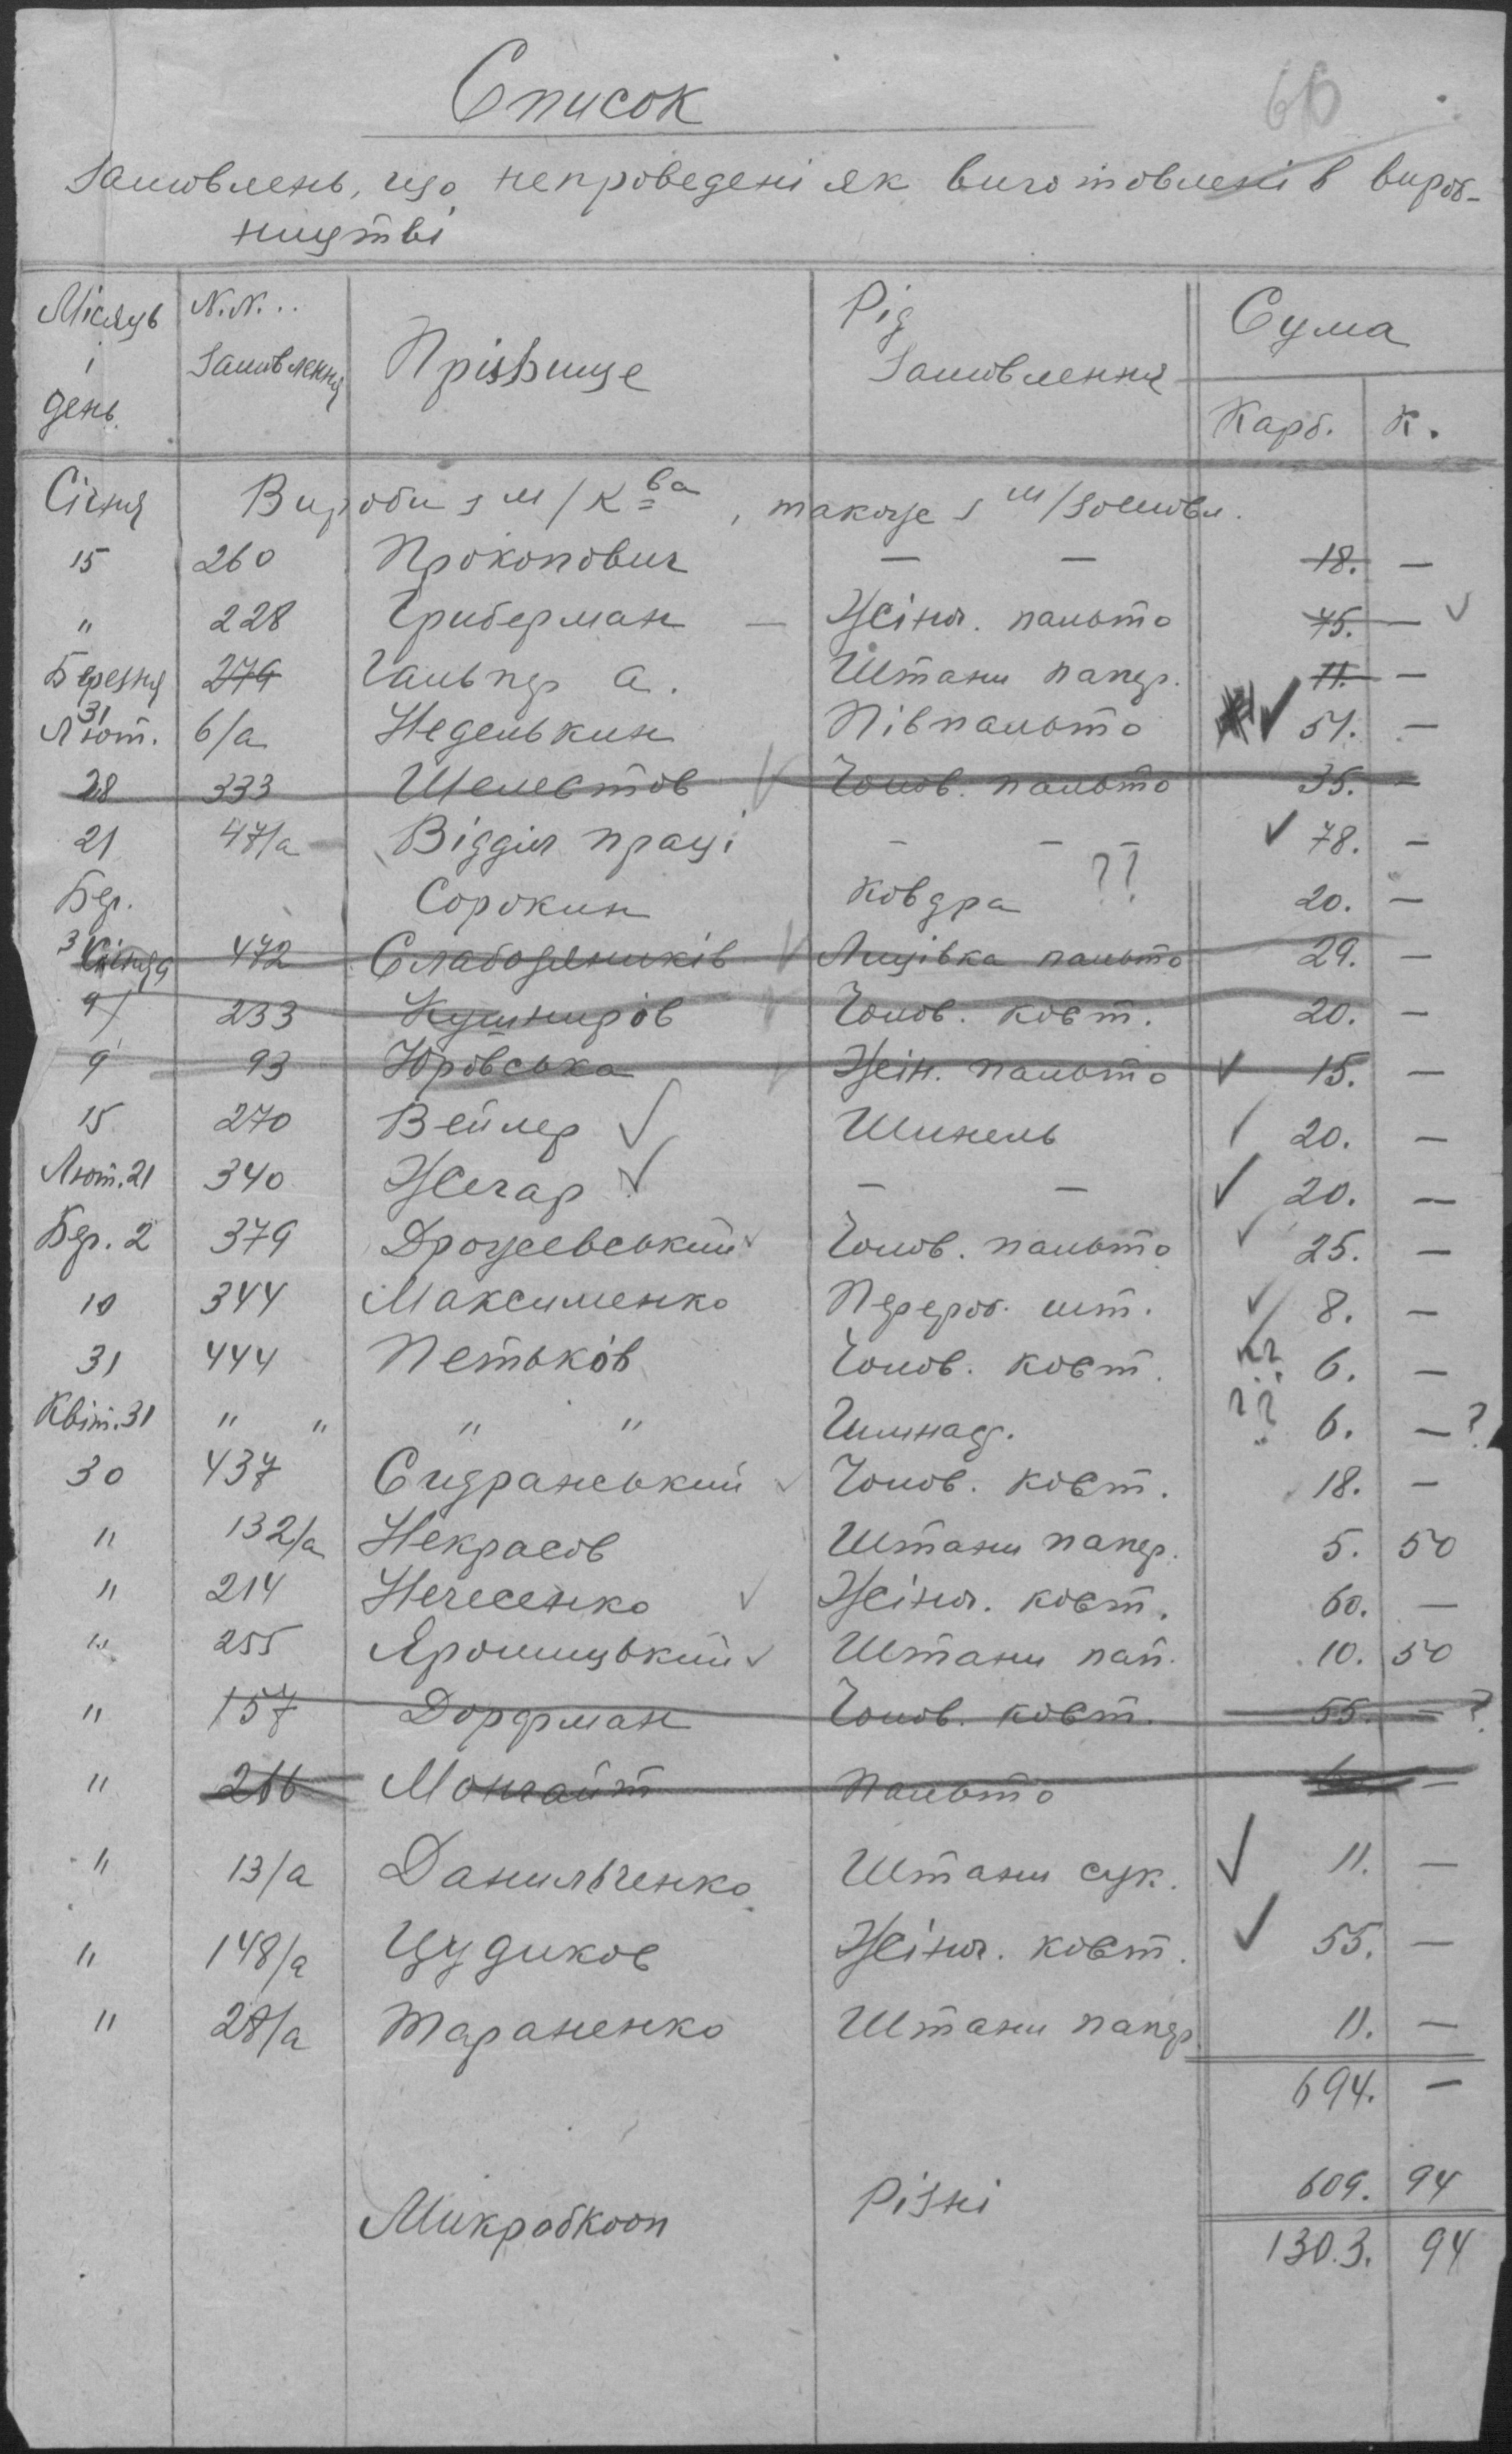 66
Список
Замовлень, що непроведені як виготовлені в вироб-
ництві
Місяць і день. N.N... Замовлення Прізвище Рід Замовлення Сума Карб. К.
Січня Вироби з м/к ва, також з м/замовл.
15 260 Прокопович — — 18. —
" 228 Гриберман — Жіноч. пальто 75. —
Березня 31 279 Гальпер А. Штани папер. 11. —
Лют. 6/а Неделькин Півпальто 51. —
28 333 Шелестов Чолов. пальто 35. —
21 47/а Відділ праці — — — 78. —
Бер. Сорокин Ковдра ?? 20. —
3 472 Слабодяників Лицівка пальто 29. —
9 233 Кушниров Чолов. кост. 20. —
9 93 Юровська Жін. пальто 15. —
15 270 Вейлер Шинель 20. —
Лют. 21 340 Жегар — — 20. —
Бер. 2 379 Дрожевський Чолов. пальто 25. —
10 344 Максименко Перероб. шт. 8. —
31 444 Петьков Чолов. кост. ?? 6. —
Квіт. 31 " " " " ?? 6. — ?
30 437 Сидранський Чолов. кост. 18. —
" 132/а Некрасов Штани папер. 5. 50
" 214 Нечесенко Жіноч. кост. 60. —
" 255 Яромицький Штани пап. 10. 50
" 157 Дорфман Чолов. кост. 55. — ?
" 266 Монгайт Пальто —
" 13/а Данильченко Штани сук. 11. —
" 148/а Цудиков Жіноч. кост. 55. —
" 28/а Тараненко Штани папер 11. —
694. —
Микробкооп Різні 609. 94
130.3. 94